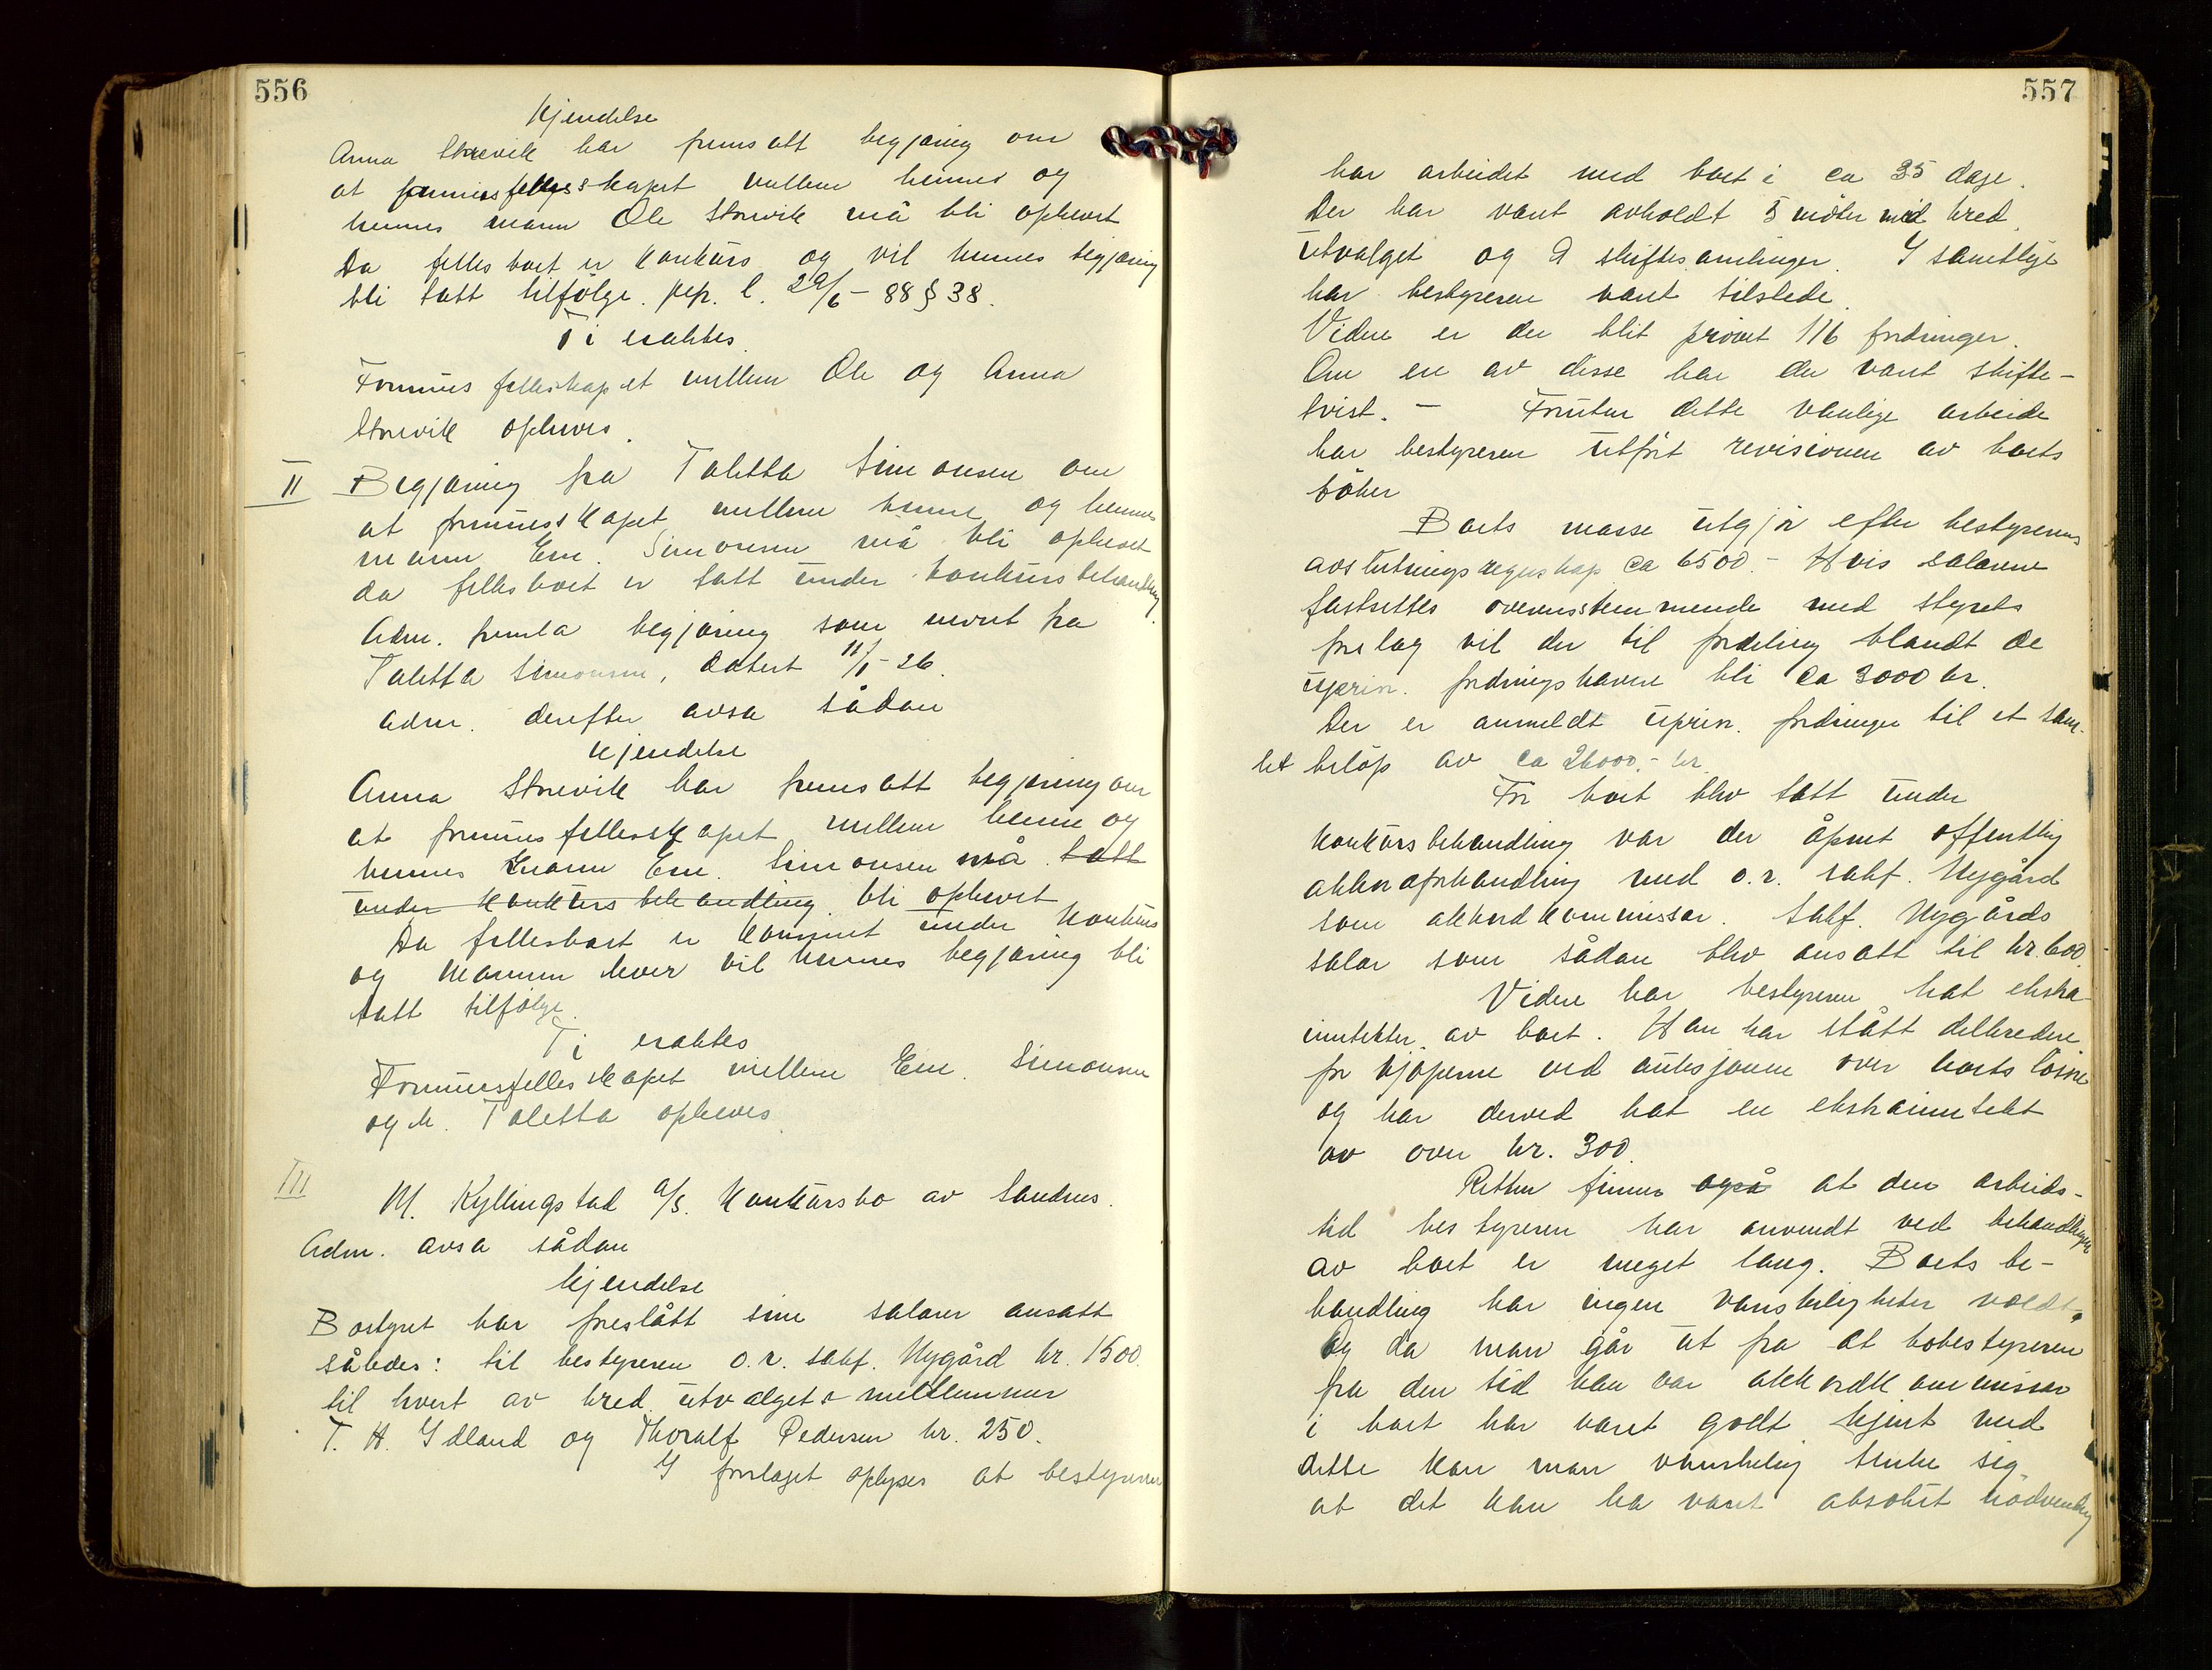 556
Kjendelse
Anna Storevik har fremsatt begjæring om
at formuesfellesskapet mellem hennes og
hennes mann Ole Storevik må bli ophevet
Da fellesboet er konkurs og vil hennes begjæring
bli tatt tilfølge. jvfr. l. 29/6 - 88 § 38.
Ti eraktes
Formuesfelleskapet mellem Ole og Anna
Storevik opheves.
II Begjæring fra Taletta Simonsen om
at formuesskapet mellem henne og hennes
mann Em. Simonsen må bli ophevet
da fellesboet er tatt under konkursbehandling.
Adm. fremla begjæring som nevnt fra
Taletta Simonsen, datert 11/1 - 26.
Adm. derefter avsa sådan
Kjendelse
Anna Storevik har fremsatt begjæring om
at formuesfellesskapet mellem henne og
hennes mann Em. Simonsen må tatt
under konkursbehandling bli ophevet
Da fellesboet er kommet under konkurs
og mannen lever vil hennes begjæring bli
tatt tilfølge.
Ti eraktes
Formuesfellesskapet mellem Em. Simonsen
og h. Taletta opheves
III
M. Kyllingstad A/S. Konkursbo av Sandnes.
Adm. avsa sådan
Kjendelse
Bostyret har foreslått sine salærer ansatt
således: til bestyreren o.r. sakf. Nygård kr. 1500.
til hvert av kred. utvalgets medlemmer
T. H. Ydland og Thoralf Pedersen kr. 250.
I forslaget oplyses at bestyreren
557
har arbeidet med boet i ca 35 dage.
Der har vært avholdt 5 møter med kred.
utvalget og 9 skiftesamlinger. I samtlige
har bestyreren været tilstede.
Videre er der blit prøvet 116 fordringer.
Om en av disse har der vært skifte-
tvist. - Foruten dette vanlige arbeide
har bestyreren utført revisionen av boets
bøker
Boets masse utgjør efter bestyrerens
avslutningsregnskap ca 6500.- Hvis salærene
fastsettes overensstemmende med styrets
forslag vil der til fordeling blandt de
uprior. fordringshavere bli ca 3000 kr.
Der er anmeldt uprior. fordringer til et sam-
let beløp av ca 26000.- kr.
Før boet blev tatt under
konkursbehandling var der åpnet offentlig
akkordforhandling med o.r. sakf. Nygård
som akkordkommissær. Sakf. Nygårds
salær som sådan blev ansatt til kr. 600.
Videre har bestyreren hat ekstra-
inntekter av boet. Han har stått delkredere
for kjøperne ved auksjonen over boets løsøre
og har derved hat en ekstrainntekt
av over kr. 300.
Retten finner også at den arbeids-
tid bestyreren har anvendt ved behandlingen
av boet er meget lang. Boets be-
handling har ingen vanskeligheter voldt.
Og da man går ut fra at bobestyreren
fra den tid han var akkordkommissær
i boet har været godt kjent med
dette kan man vanskelig tenke sig
at det kan ha vært absolut nødvendig